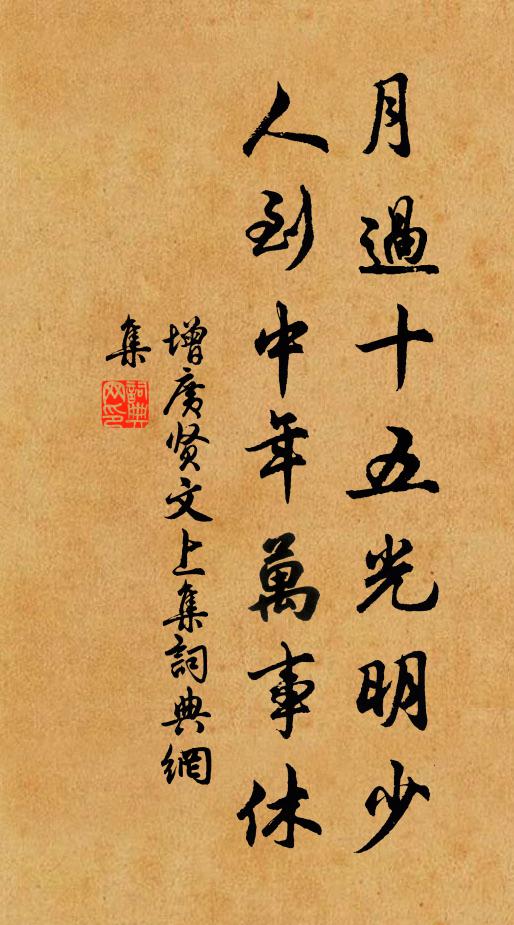 月過十五光明少
人到中年萬事休
增廣贤文上集詞典網
集
詞典
网印